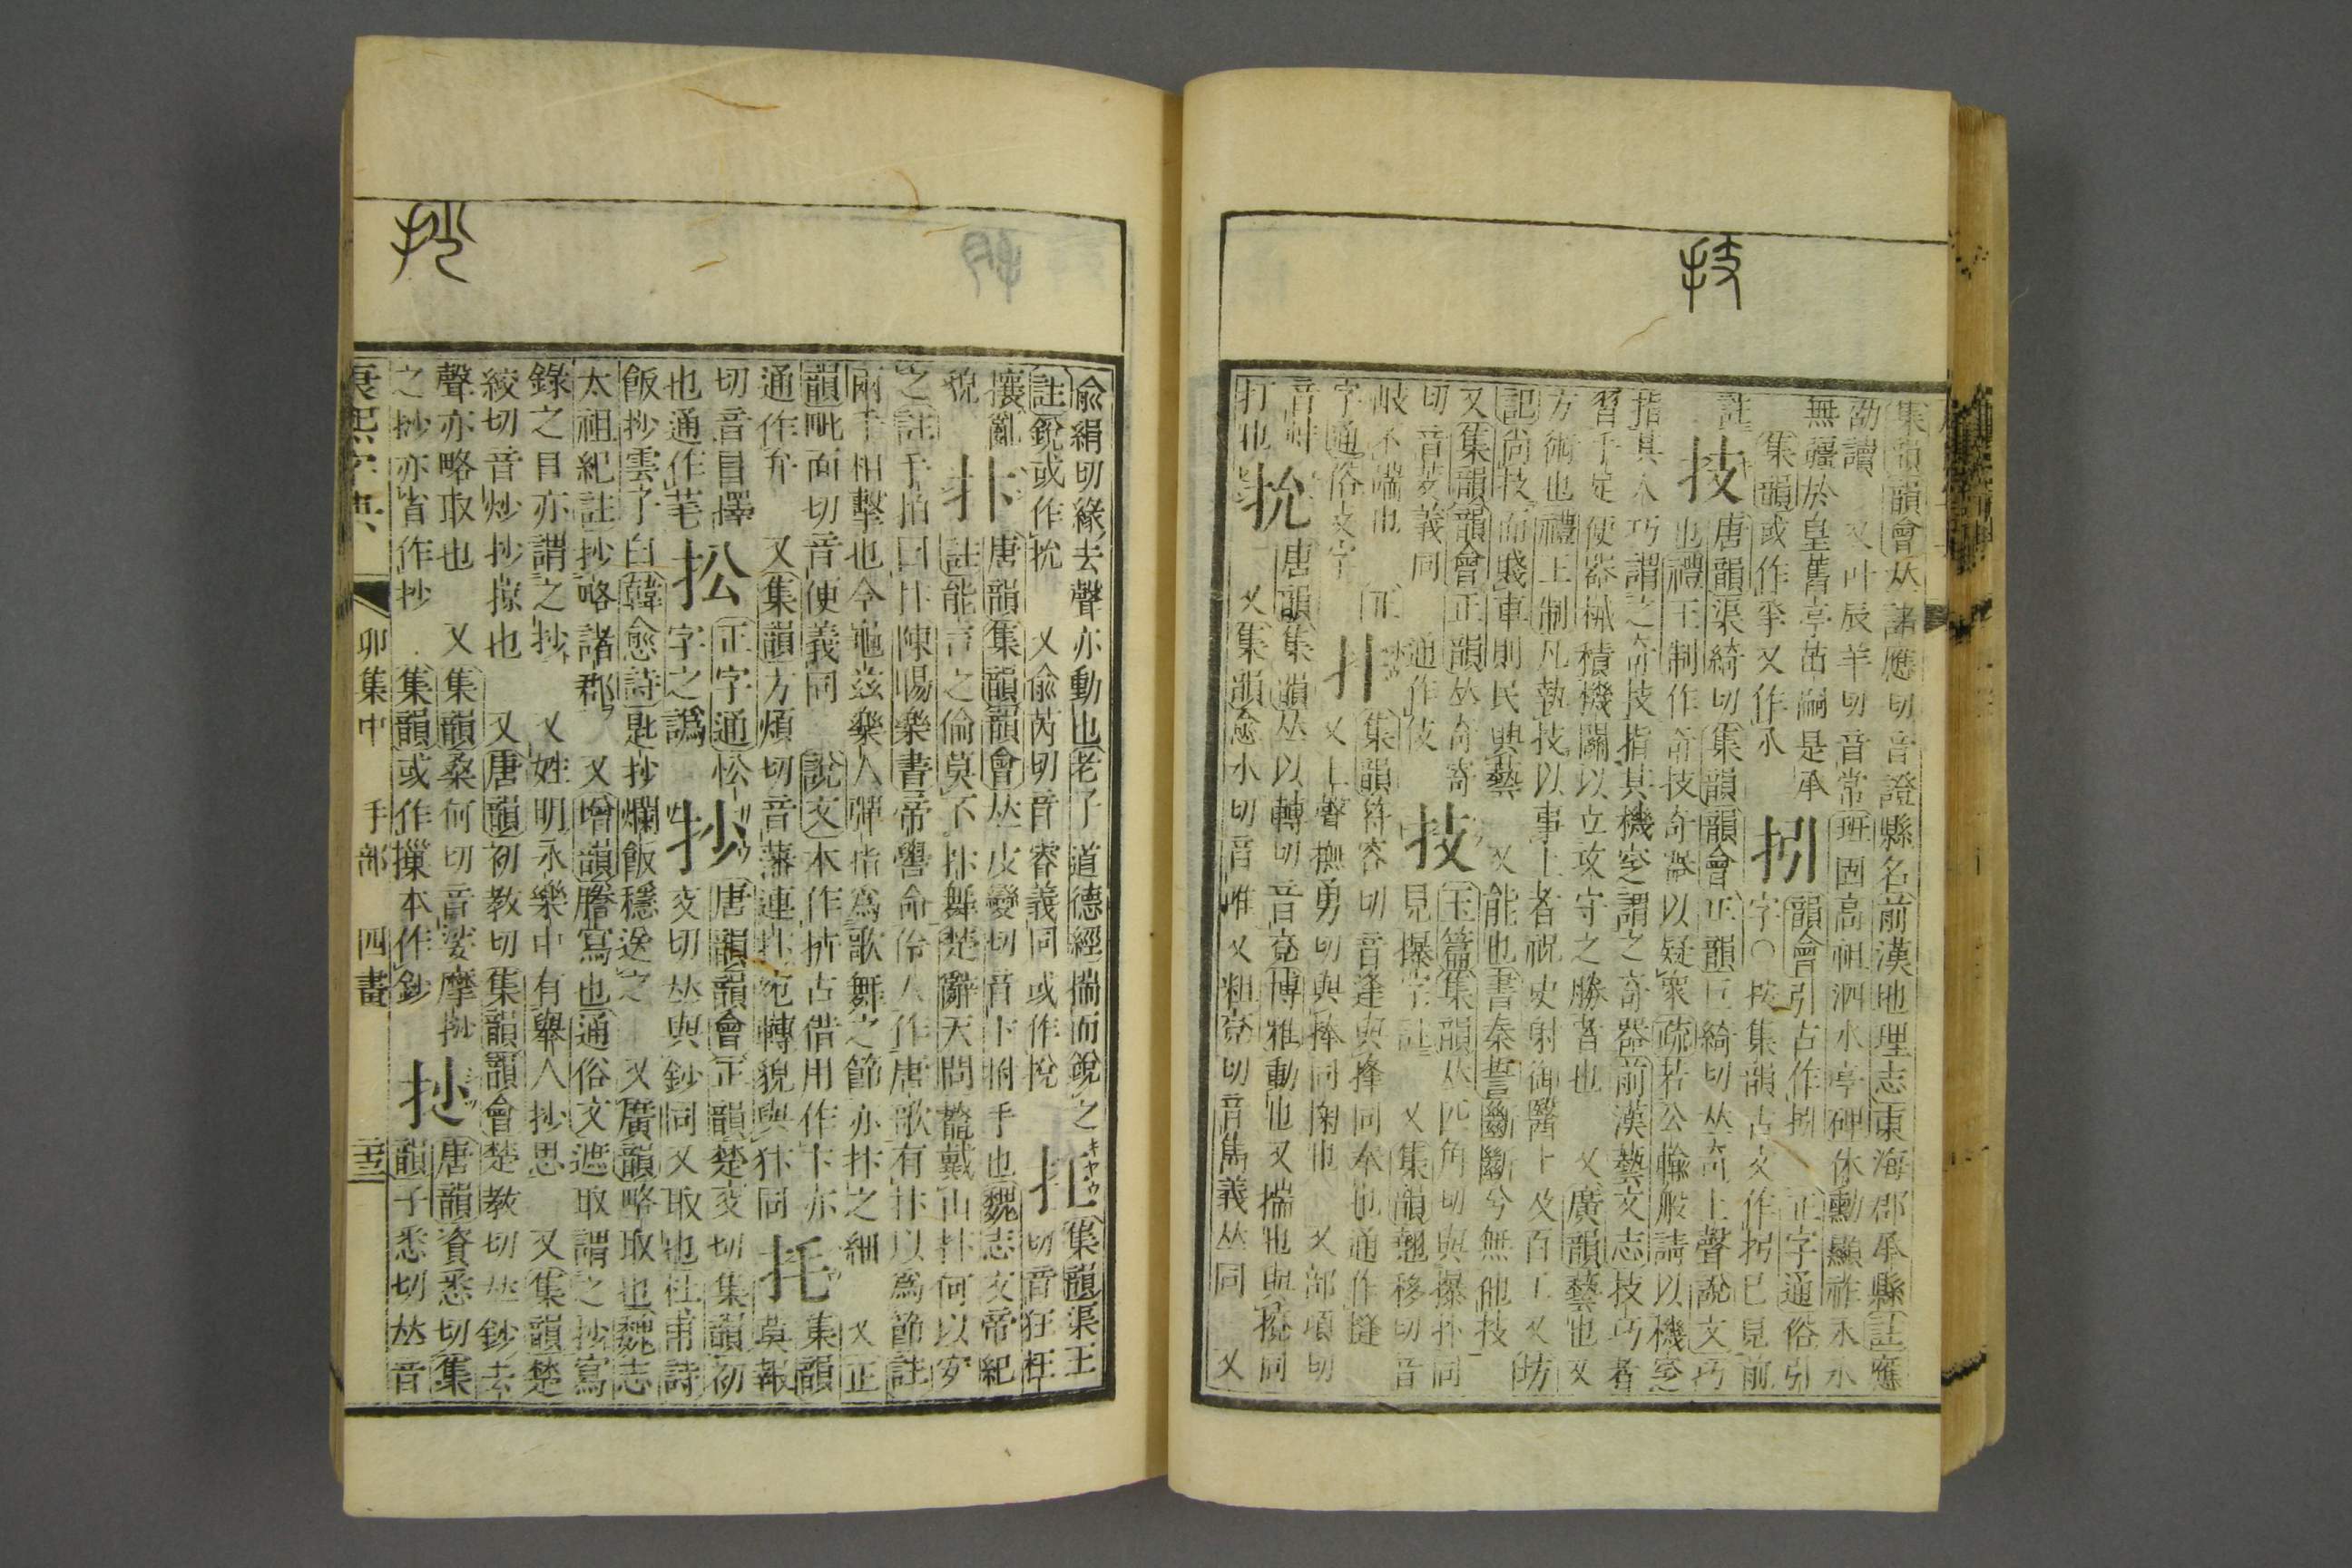 技
集韻韻會𠀤諸應切音證縣名前漢地理志東海郡承縣註應
劭讀 又叶辰羊切音常班固高祖泗水亭碑休勳顯祚永永
無疆於皇舊亭苗嗣是承
集韻或作㧈又作氶
抝 韻會引古作抝 正字通俗引
字○按集韻古文作拐已見前
註
技 唐韻渠綺切集韻韻會正韻巨綺切𠀤奇上聲說文巧
也禮王制作奇技奇器以疑衆疏若公輸般請以機窆
指其人巧謂之奇技指其機窆謂之奇器前漢藝文志技巧者
習手足便器械積機關以立攻守之勝者也 又廣韻藝也又
方術也禮王制凡執技以事上者祝史射御醫卜及百工又坊
記尚技而賤車則民興藝 又能也書秦誓斷斷兮無他技
又集韻韻會正韻𠀤奇寄
切音芰義同 通作伎
技 玉篇集韻𠀤匹角切與撲扑同
見撲字註 又集韻翹移切音
岐不端也 正
字通俗支字
扌 集韻符容切音逢與摓同奉也通作縫
又上聲撫勇切與捧同掬也 又部項切
音棒
打也
抁 唐韻集韻𠀤以轉切音兗博雅動也又揣也與㨊同 又
又集韻愈水切音唯又粗兗切音雋義𠀤同
抄
俞絹切緣去聲亦動也老子道德經揣而銳之
註銳或作抁 又俞芮切音睿義同或作挩
抂 集韻渠王
切音狂抂
攘亂
貌
抃 唐韻集韻韻會𠀤皮變切音卞拊手也魏志文帝紀
註能言之倫莫不抃舞楚辭天問鼇戴山抃何以安
之註手拍曰抃陳暘樂書帝嚳命伶人作唐歌有抃以爲節註
兩手相擊也今龜茲樂人彈指爲歌舞之節亦抃之細 又正
韻毗面切音便義同 說文本作拚古借用作卞亦
通作弁 又集韻方煩切音藩連抃宛轉貌與抃同
托 集韻
莫報
切音冒擇
也通作芼
抎 正字通忪
字之譌
抄 唐韻韻會正韻楚交切集韻初
交切𠀤與鈔同又取也杜甫詩
飯抄雲子白韓愈詩匙抄爛飯穩送之 又廣韻略取也魏志
太祖紀註抄略諸郡 又增韻謄寫也通俗文遮取謂之抄寫
錄之目亦謂之抄 又姓明永樂中有舉人抄思 又集韻楚
絞切音炒抄掠也 又唐韻初敎切集韻韻會楚敎切𠀤鈔去
聲亦略取也 又集韻桑何切音娑摩抄
之抄亦省作抄 集韻或作摷本作鈔
抋 唐韻資悉切集
韻子悉切𠀤音
康熙字典 卯集中 手部 四畫 二十三